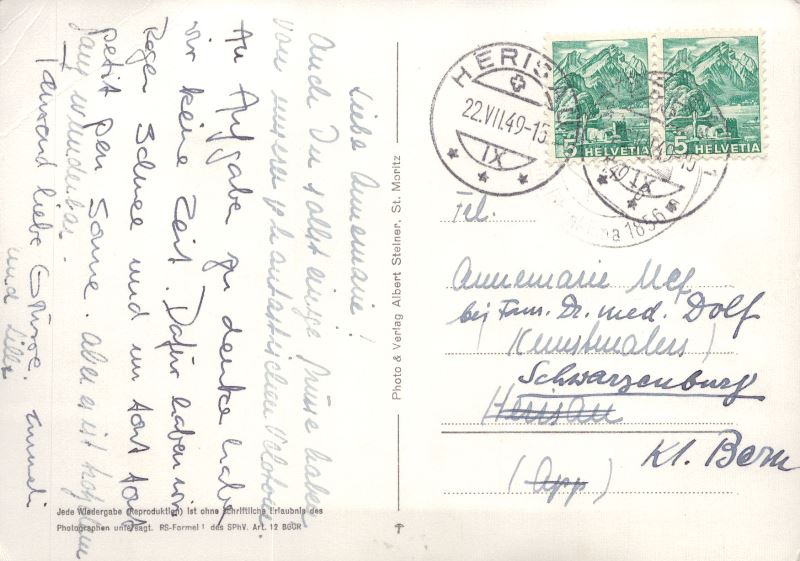 Liebe Annemarie!
Auch Du sollst einige Grüsse haben
von unserer phantastischen
An Aufgabe zu denke habe
wir keine Zeit. Dafür haben wir
Regen Schnee und um
petit peu Sonne. aber es ist trotzdem
ganz wunderbar.
Tausend liebe Grüsse.
und
Photo & Verlag Albert Steiner, St. Moritz
Jede Wiedergabe (Reproduktion) ist ohne schriftliche Erlaubnis des
Photographen untersagt. RS-Formel 1 des SPhV. Art. 12 BGUR
HERISAU
22.VII.49-15
IX
5 HELVETIA
5 HELVETIA
IX
1856 m
Annemarie
bei Fam. Dr. med. Dolf
(Kunstmalers)
Schwarzenburg
Herisau
Kt. Bern
(App)